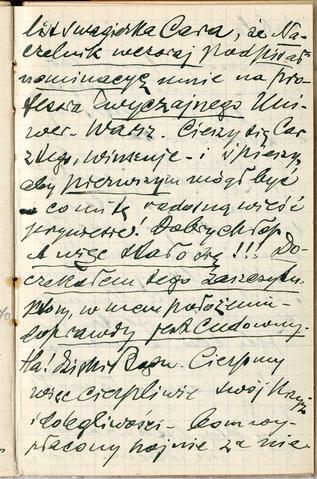 list szwagierka Cara, że Na-
czelnik wczoraj podpisał
nominację mnie na pro-
fesora zwyczajnego Uni-
wer. Warsz. Cieszy się Car
z tego, winszuje - i śpieszy
aby pierwszym mógł być
co mi tę radosną wieść
przyniesie! Dobry chłop
A więc stało się !!! Do-
czekałem tego zaszczytu
który, w mem położeniu -
doprawdy jest cudowny-
Ha! Dzięki Bogu. Cierpmy
więc cierpliwie swój krzyż
i dolegliwości - bom wy-
płacony hojnie za nie